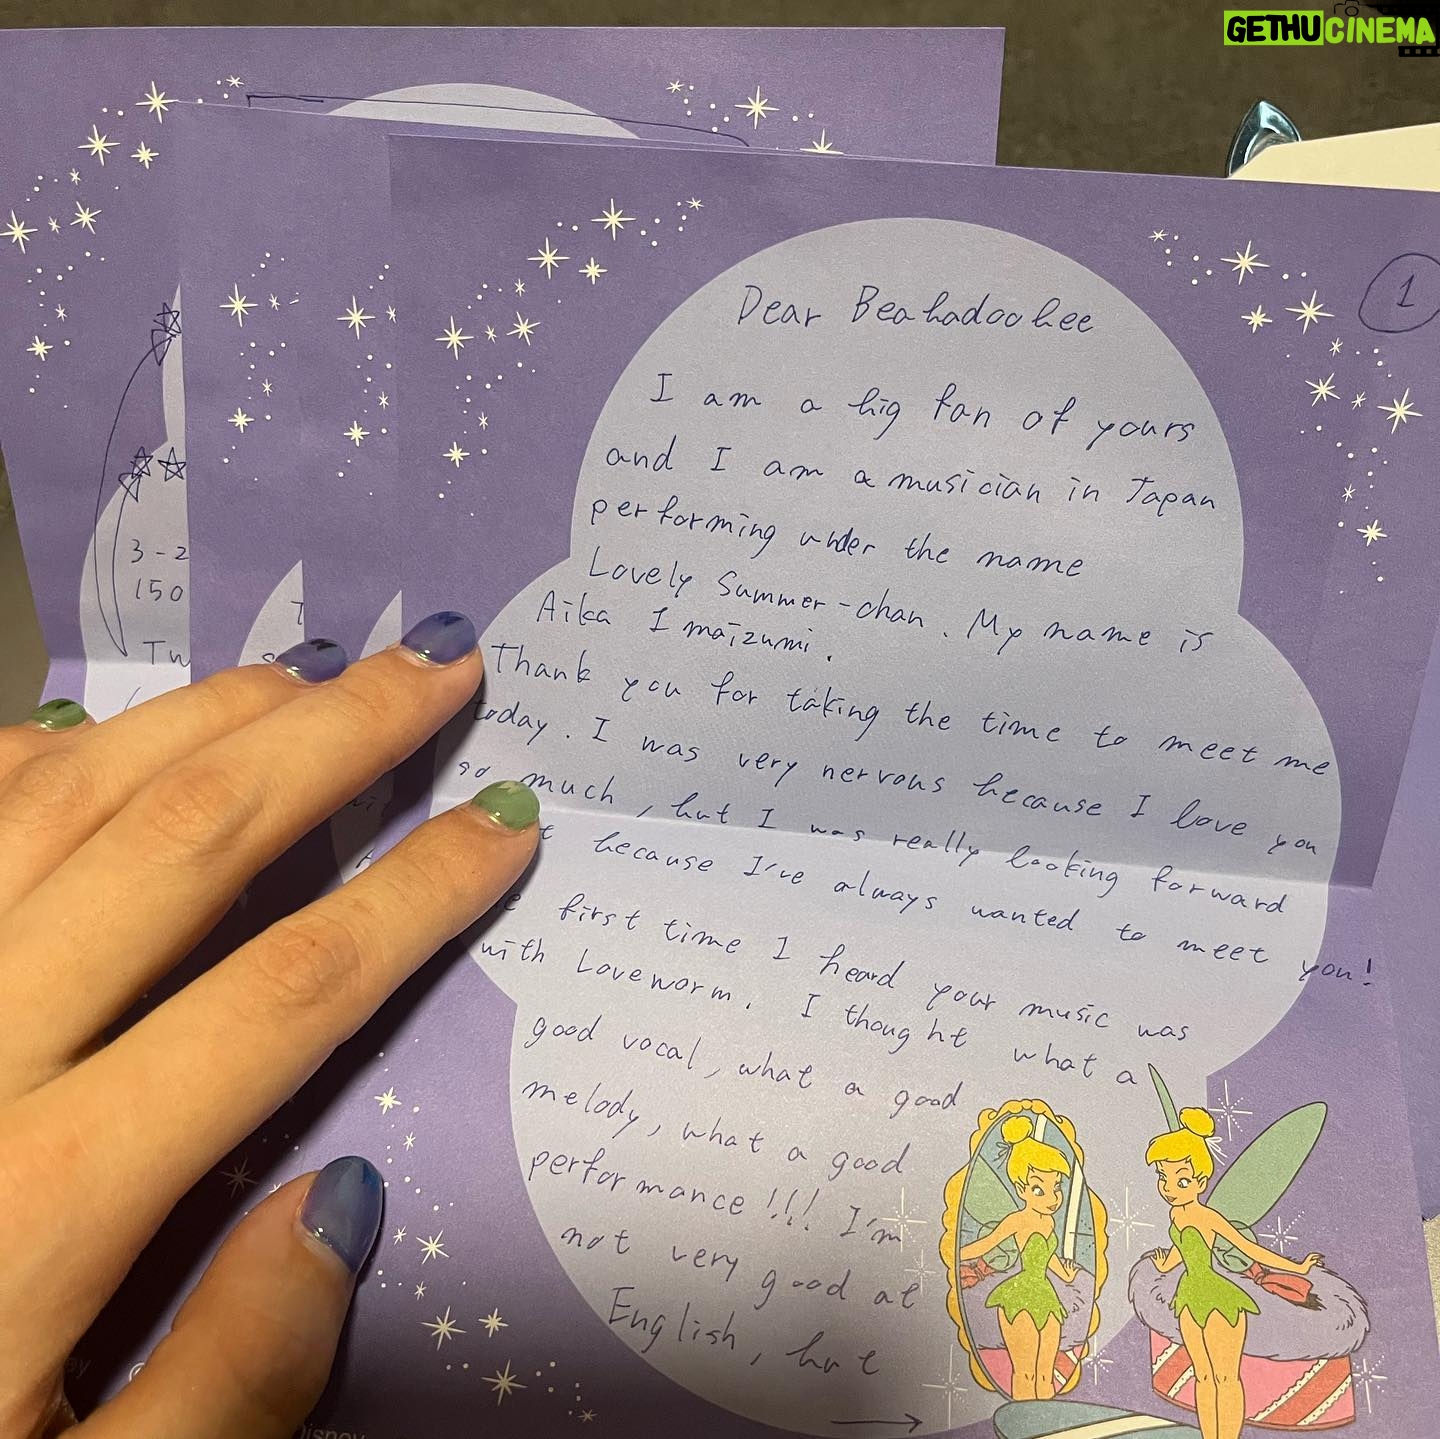 GETHUCINEMA
1
Dear Beabadoobee
I am a big fan of yours
and I am a musician in Japan
performing under the name
Lovely Summer-chan. My name is
Aika Imaizumi.
Thank you for taking the time to meet me
today. I was very nervous because I love you
so much, but I was really looking forward
because I've always wanted to meet you!
first time I heard your music was
with Loveworm. I thought what a
good vocal, what a good
melody, what a good
performance!!! I'm
not very good at
English, but
3-2
150
Tw